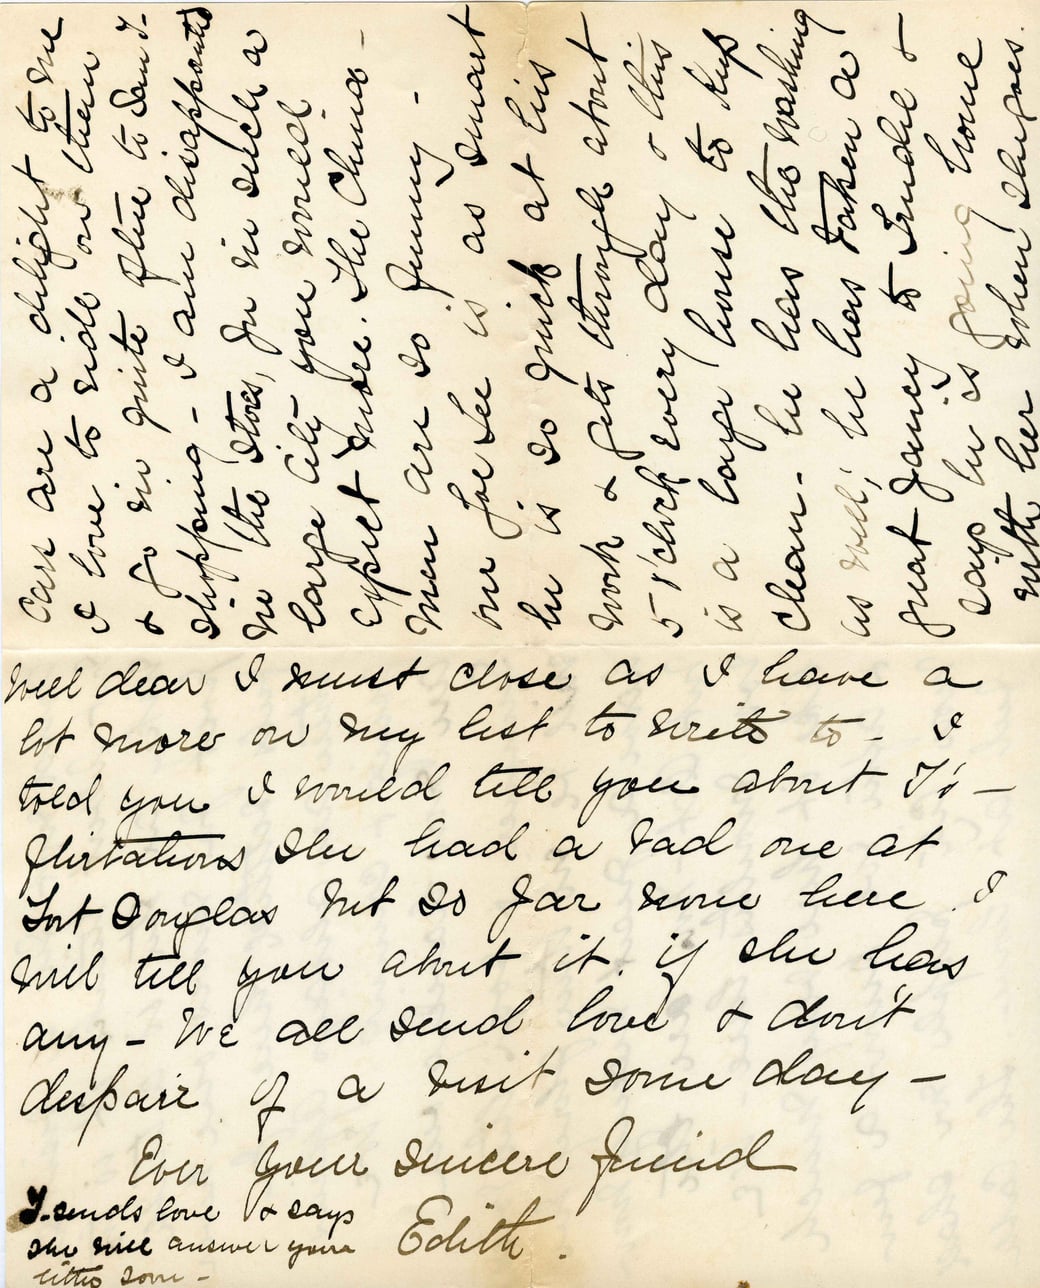 cars are a delight to me
I love to ride on them
& go in quite often to San F-
shopping - I am disappointed
in the stores, for in such a
large city you would
expect more. The China-
men are so funny -
our Joe Lee is as smart
he is so quick at his
work & gets through about
5 o'clock every day & this
is a large house to keep
clean - he has the washing
as well, he has taken a
great fancy to Trudie &
says he is going home
with her when she goes.
Well dear I must close as I have a
lot more on my list to write to - I
told you I would tell you about T's -
flirtations she had a bad one at
Fort Douglas but so far none here. I
will tell you about it. if she has
any - We all send love & don't
despair of a visit some day -
Ever your sincere friend
Edith.
T. sends love & says
she will answer your
letter soon -